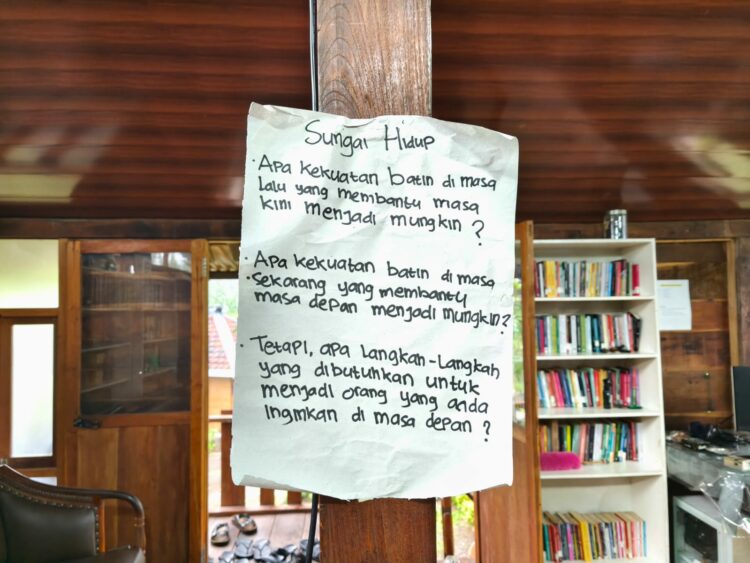 Sungai Hidup
· Apa kekuatan batin di masa
lalu yang membantu masa
kini menjadi mungkin ?
· Apa kekuatan batin di masa
· Sekarang yang membantu
masa depan menjadi mungkin?
· Tetapi, apa langkah-langkah
yang dibutuhkan untuk
menjadi orang yang anda
inginkan di masa depan ?